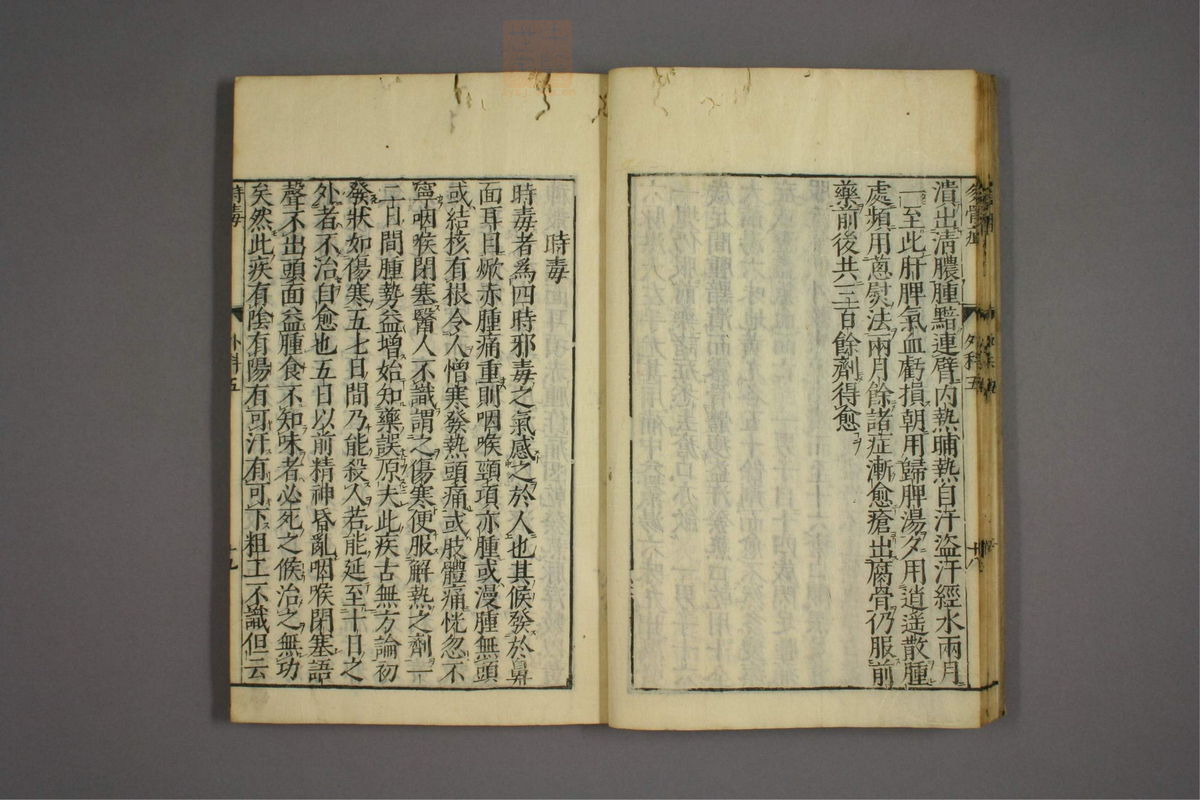 潰出清膿腫黯連臂内熱晡熱自汗盗汗經水兩月
一至此肝脾氣血虧損朝用歸脾湯夕用逍遥散腫
處頻用蔥熨法兩月餘諸症漸愈瘡出腐骨仍服前
藥前後共三百餘劑得愈
外科五
時毒
時毒者爲四時邪毒之氣感之於人也其候發於鼻
面耳目焮赤腫痛重則咽喉頸項亦腫或漫腫無頭
或結核有根令人憎寒發熱頭痛或肢體痛恍忽不
寧咽喉閉塞醫人不識謂之傷寒便服解熱之劑一
二日間腫勢益增始知藥誤原夫此疾古無方論初
發狀如傷寒五七日間乃能殺人若能延至十日之
外者不治自愈也五日以前精神昏亂咽喉閉塞語
聲不出頭面益腫食不知味者必死之候治之無功
矣然此疾有陰有陽有可汗有可下粗工不識但云
時毒
外科五
十九